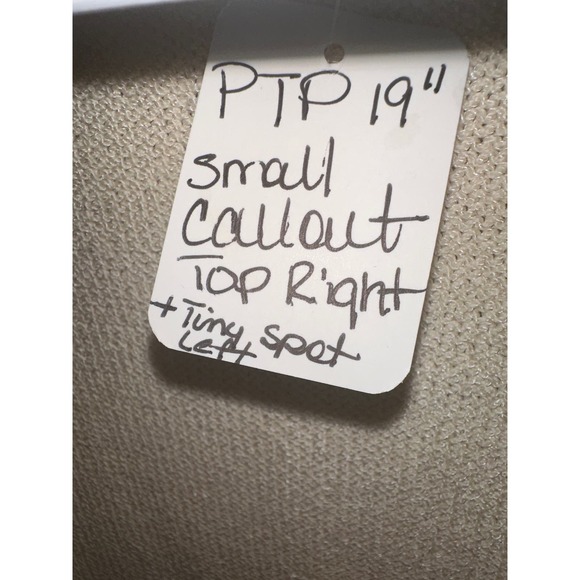 PTP 19"
small
Callout
Top Right
+ Tiny spot
Left